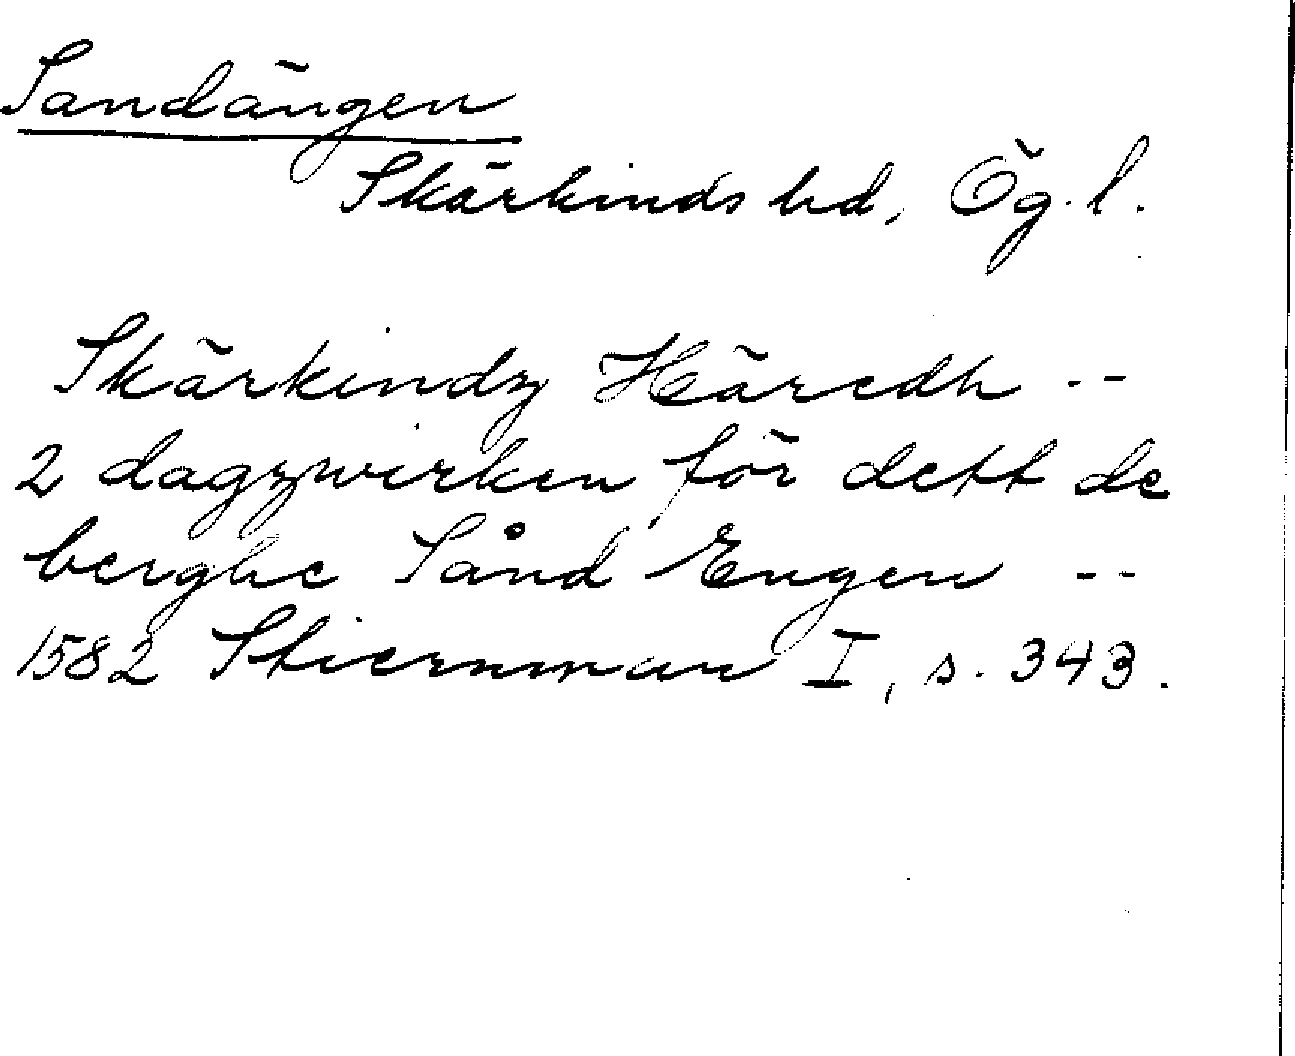 Sandängen
Skärkinds hd, Ög. l.
Skärkindz Häredh --
2 dagzwerken för dett de
berghe Sånd Engen --
1582 Stiernman I, s. 343.